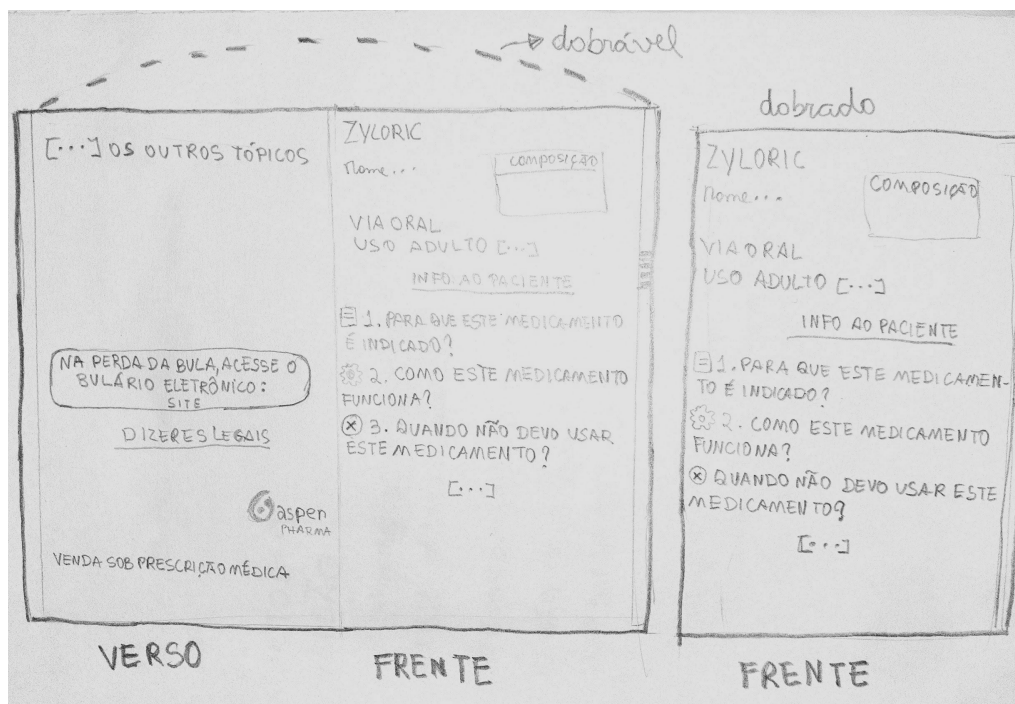 dobrável
[...] OS OUTROS TÓPICOS
NA PERDA DA BULA, ACESSE O
BULÁRIO ELETRÔNICO:
SITE
DIZERES LEGAIS
aspen
PHARMA
VENDA SOB PRESCRIÇÃO MÉDICA
VERSO
ZYLORIC
Nome...
COMPOSIÇÃO
VIA ORAL
USO ADULTO [...]
INFO AO PACIENTE
1. PARA QUE ESTE MEDICAMENTO
É INDICADO?
2. COMO ESTE MEDICAMENTO
FUNCIONA?
3. QUANDO NÃO DEVO USAR
ESTE MEDICAMENTO?
[...]
FRENTE
dobrado
ZYLORIC
Nome...
COMPOSIÇÃO
VIA ORAL
USO ADULTO [...]
INFO AO PACIENTE
1. PARA QUE ESTE MEDICAMEN-
TO É INDICADO?
2. COMO ESTE MEDICAMENTO
FUNCIONA?
QUANDO NÃO DEVO USAR ESTE
MEDICAMENTO?
[...]
FRENTE